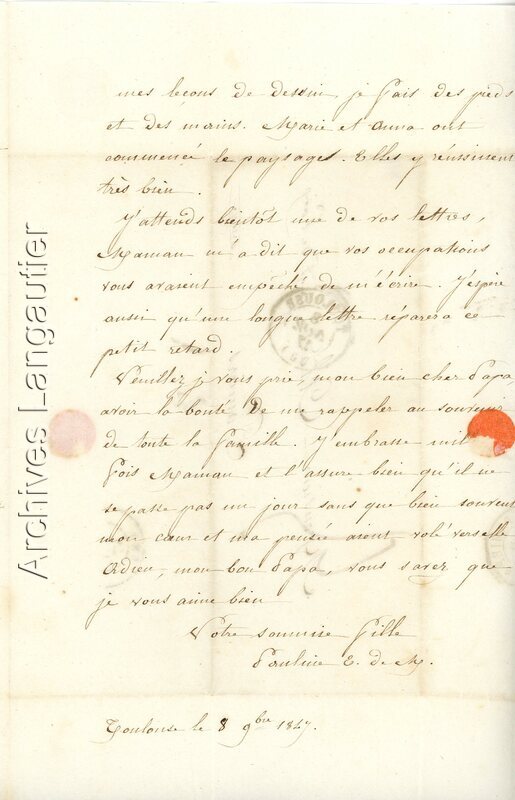 mes leçons de dessin, je fais des pieds
et des mains. Marie et Anna ont
commencé le paysages. Elles y réussissent
très bien.
J'attends bientôt une de vos lettres,
Maman m'a dit que vos occupations
vous avaient empêché de m'écrire. J'espère
aussi qu'une longue lettre réparera ce
petit retard.
Veuillez je vous prie, mon bien cher Papa,
avoir la bonté de me rappeler au souvenir
de toute la famille. J'embrasse mil
fois Maman et l'assure bien qu'il ne
se passe pas un jour sans que bien souvent
mon cœur et ma pensée aient volé vers elle
Adieu, mon bon Papa, vous savez que
je vous aime bien
Votre soumise fille
Pauline E. de M.
Toulouse le 8 9bre 1847.
Archives Langautier